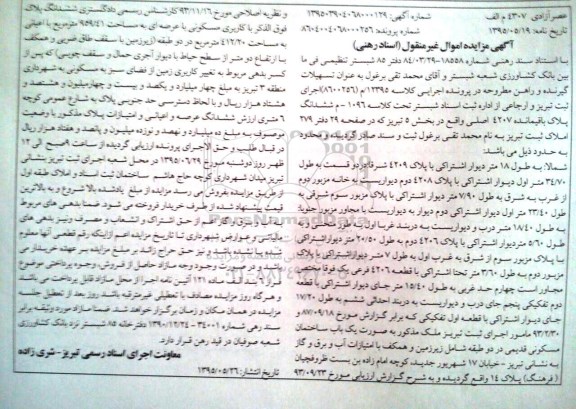 عصر آزادی ۴۳۰۷ م الف
شماره آگهی: ۱۳۹۵۰۳۹۰۴۰۶۸۰۰۰۱۲۹
تاریخ نامه: ۱۳۹۵/۰۵/۱۹
شماره پرونده: ۸۶۰۴۰۰۴۰۶۸۰۰۰۲۵۶
آگهی مزایده اموال غیرمنقول (اسناد رهنی)
با استناد سند رهنی شماره ۱۸۵۵۸-۸۴/۰۳/۲۹ دفتر ۸۵ شبستر تنظیمی فی ما
بین بانک کشاورزی شعبه شبستر و آقای محمد تقی برغول به عنوان تسهیلات
گیرنده و راهن مطروحه در پرونده اجرایی کلاسه
تبریز و ارجاعی از اداره ثبت اسناد شبستر تحت کلاسه ۱۰۹۶-م ششدانگ
پلاک باقیمانده ۴۲۰۷ اصلی واقع در بخش ۵ تبریز که در صفحه ۲۹ دفتر ۳۷۹
املاک ثبت تبریز به نام محمد تقی برغول ثبت و سند صادر گردیده و محدود
به حدود ذیل می باشد:
شمالا: به طول ۱۸ متر دیوار اشتراکی با پلاک ۴۲۰۹ شرقا در دو قسمت به طول
۳۴/۷۰ متر اول دیوار اشتراکی با پلاک ۴۲۰۸ دوم دیواریست به خانه مزبور دوم
از غرب به شرق به طول ۷/۹۰ متر دیوار اشتراکی با پلاک مزبور سوم شرقی به
طول ۲۳/۴۰ متر اول دیوار اشتراکی دوم دیوار به دیواریست با مجاور مزبور جنوبا
به طول ۱۸/۴۰ متر درب و دیواریست به دربند غربا اول به طور منحنی و به
طول ۵/۶۰ متر دیوار اشتراکی با پلاک ۴۲۰۶ دوم به طول ۲۰/۵۰ متر دیوار اشتراکی
با پلاک مزبور سوم از شرق به غرب اول به طول ۷ متر دیوار اشتراکی با پلاک
مزبور دوم به طول ۳/۶۰ متر تحتا اشتراکی با قطعه ۴۲۰۶ فرعی یک فوقا محدود به
مجاور است چهارم حد غربی به طول ۱۵/۴۰ متر جای دیوار اشتراکی با قطعه
دوم تفکیکی پنجم جای درب و دیواریست به دربند احداثی ششم به طول ۱۷/۲۰
جای دیوار اشتراکی با قطعه اول تفکیکی که برابر گزارش مورخ ۸۷/۰۹/۱۸ و
۹۳/۲/۳۰ مامور اجرای ثبت تبریز ملک مذکور به صورت یک باب ساختمان
مسکونی قدیمی در دو طبقه شامل زیرزمین و همکف با امتیازات آب و برق و گاز
به نشانی تبریز - خیابان ۱۷ شهریور جدید، کوچه امام زاده بن بست ظروفچیان
(فرهنگ) پلاک ۱۴ واقع گردیده و به شرح گزارش ارزیابی مورخ ۹۳/۰۹/۲۳
و نظریه اصلاحی مورخ ۹۳/۱۱/۱۶ کارشناس رسمی دادگستری ششدانگ پلاک
فوق الذکر با کاربری مسکونی با عرصه ای به مساحت ۹۵۹/۴۱ با اعیانی
به مساحت ۴۱۲/۲۰ مترمربع در دو طبقه (زیرزمین با سقف طاق ضربی و همکف
با ارتفاع دو متر از سطح حیاط با دیوار آجری حمال و سقف چوبی) که پس از
کسر بدهی مربوط به تغییر کاربری زمین از فضای سبز به مسکونی به شهرداری
منطقه ۳ تبریز به مبلغ چهار میلیارد و یکصد و بیست و چهار میلیون و هشتصد و
هشتاد هزار ریال و با لحاظ دسترسی حد جنوبی پلاک به شارع عمومی کوچه
۶ متری ارزش ششدانگ عرصه و اعیانی و امتیازات پلاک مذکور با وضعیت
موصوف به مبلغ ده میلیارد و نهصد و نوزده میلیون و پانصد و هفتاد هزار ریال
در قبال طلب و حق الاجرای پرونده ارزیابی گردیده از ساعت ۹ صبح الی ۱۲
ظهر روز دوشنبه مورخ ۱۳۹۵/۰۶/۲۹ در محل شعبه اجرای ثبت تبریز بنشانی
تبریز میدان شهرداری کوچه حاج هاشم ساختمان ثبت اسناد و املاک طبقه اول
از طریق مزایده بفروش می رسد مزایده از مبلغ یاد شده بالا شروع و به بالاترین
قیمت پیشنهاد شده از طرف خریدار فروخته می شود. ضمنا بدهی های مربوط
به آب و برق و گاز اعم از حق اشتراک و انشعاب و مصرف و نیز بدهی های
مالیاتی و عوارض شهرداری تا تاریخ مزایده اعم از اینکه رقم قطعی آنها معلوم
حق حراج زائد بر مبلغ مزایده بر عهده خریدار می
باشد در صورت وجود وجه مازاد حاصل از فروش، وجوه پرداختی موضوع
ماده ۱۲۱ آئین نامه اجرا از محل مازاد قابل پرداخت می باشد
و هرگاه روز مزایده مصادف با تعطیلی غیر مترقبه باشد روز بعد از تعطیل جلسه
مزایده در همان مکان و زمان برگزار خواهد شد. ضمنا مازاد مورد وثیقه برابر
سند رهنی شماره ۳۴۰۰۱-۱۳۹۰/۱۲/۲۴ دفترخانه ۸۵ شبستر نزد بانک کشاورزی
شعبه صوفیان در قید رهن قرار دارد.
معاونت اجرای اسناد رسمی تبریز - شری زاده
تاریخ انتشار: ۱۳۹۵/۰۵/۲۶